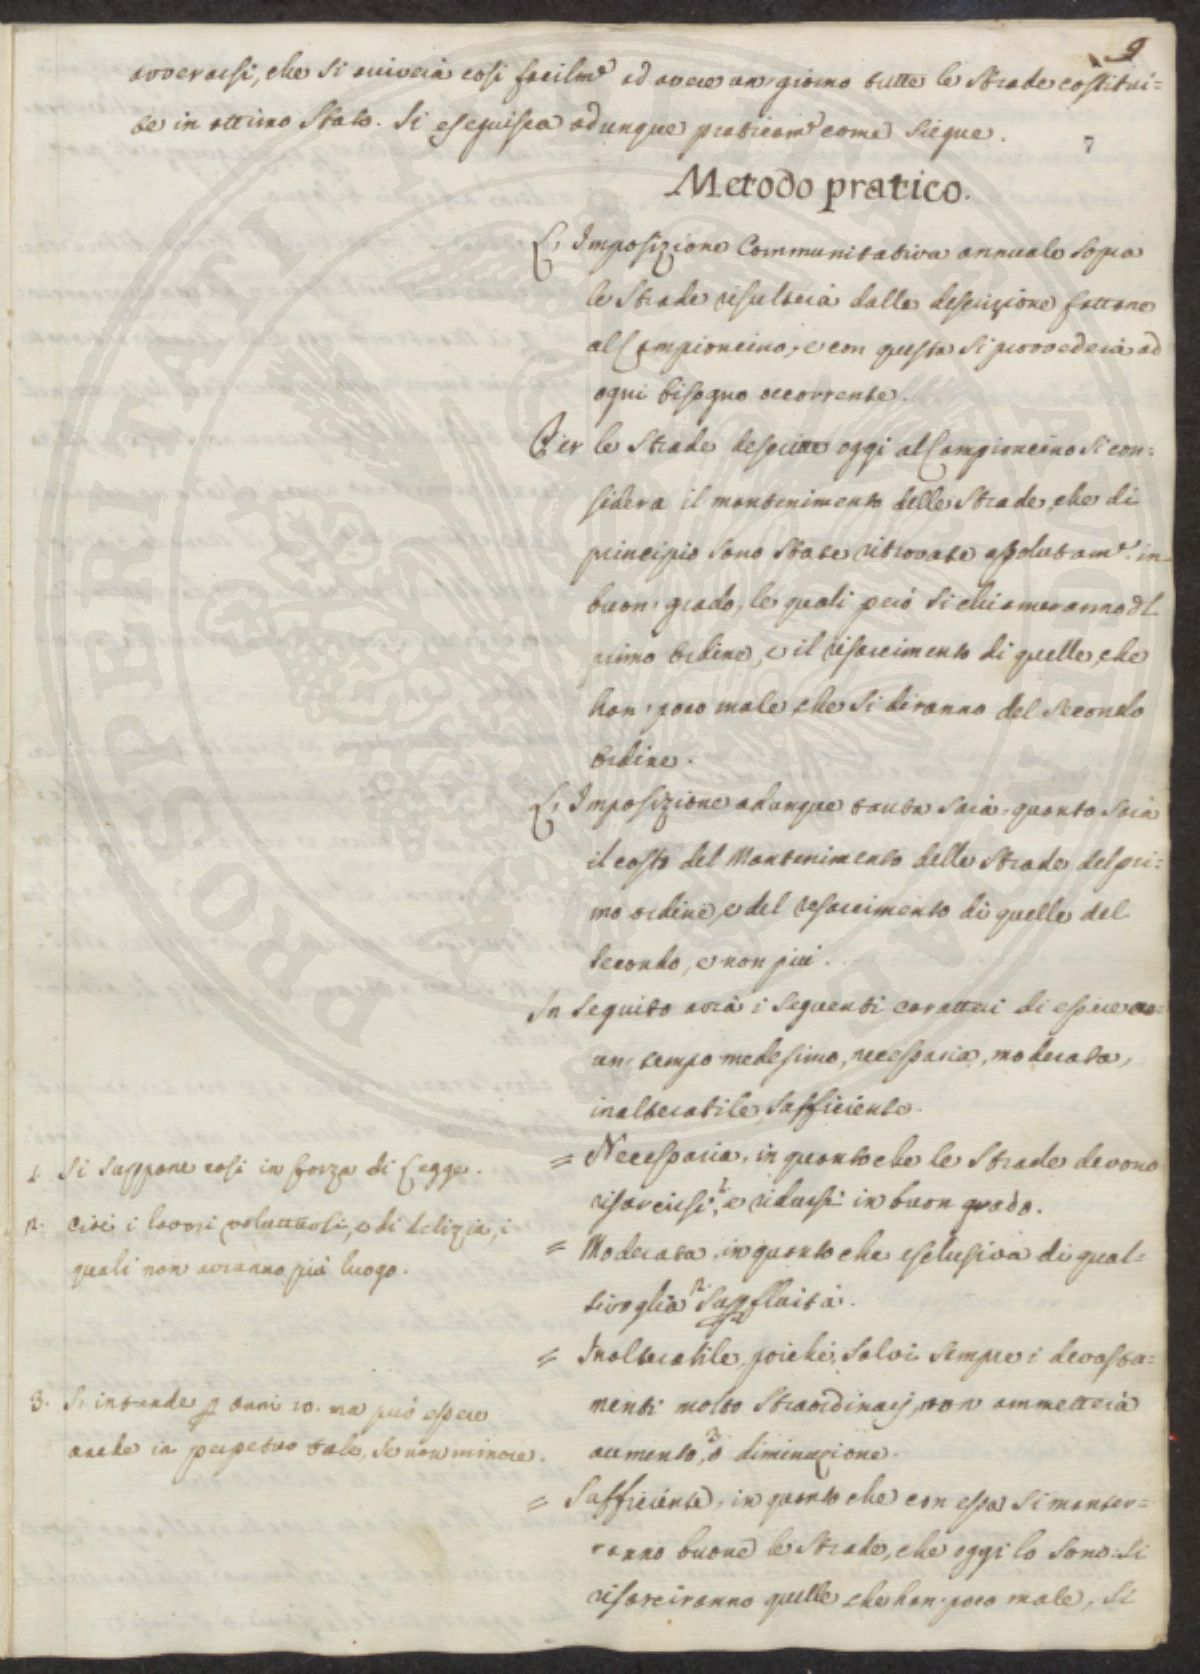 9
avverarsi, che si arriverà così facilm.e ad avere un giorno tutte le Strade costitui=
te in ottimo Stato. Si eseguisca adunque praticam.e come siegue.
7
Metodo pratico.
L'Imposizione Communitativa annuale sopra
le Strade risulterà dalla descrizione fattane
al Campioncino, e con questa si provvederà ad
ogni bisogno occorrente.
Per le Strade descritte oggi al Campioncino si con=
sidera il mantenimento delle Strade, che di
principio sono State ritrovate assolutam.e in
buon grado, le quali però si chiameranno del
primo Ordine, e il risarcimento di quelle, che
han poco male, che si diranno del Secondo
Ordine.
L'Imposizione adunque tanta sarà, quanto sarà
il costo del Mantenimento delle Strade del pri=
mo ordine, e del risarcimento di quelle del
secondo, e non più.
In seguito avrà i seguenti caratteri di essere
un tempo medesimo, necessaria, moderata,
inalterabile, sufficiente.
= Necessaria, in quanto che le Strade devono
risarcirsi, 1. e ridursi in buon grado.
= Moderata, in quanto che esclusiva di qual=
sivoglia 2. Supfluità.
= Inalterabile, poiché, salvi sempre i devasta=
menti molto straordinarj, non ammetterà
aumento, 3 o diminuzione.
= Sufficiente, in quanto che con essa si manter=
ranno buone le Strade, che oggi lo sono: si
risarciranno quelle che han poco male, si
1. Si suppone così in forza di Legge.
2. cioè i lavori voluttuosi, e di delizia, i
quali non avranno più luogo.
3. Si intende p anni 10. ma può essere
anche in perpetuo tale, se non minore.